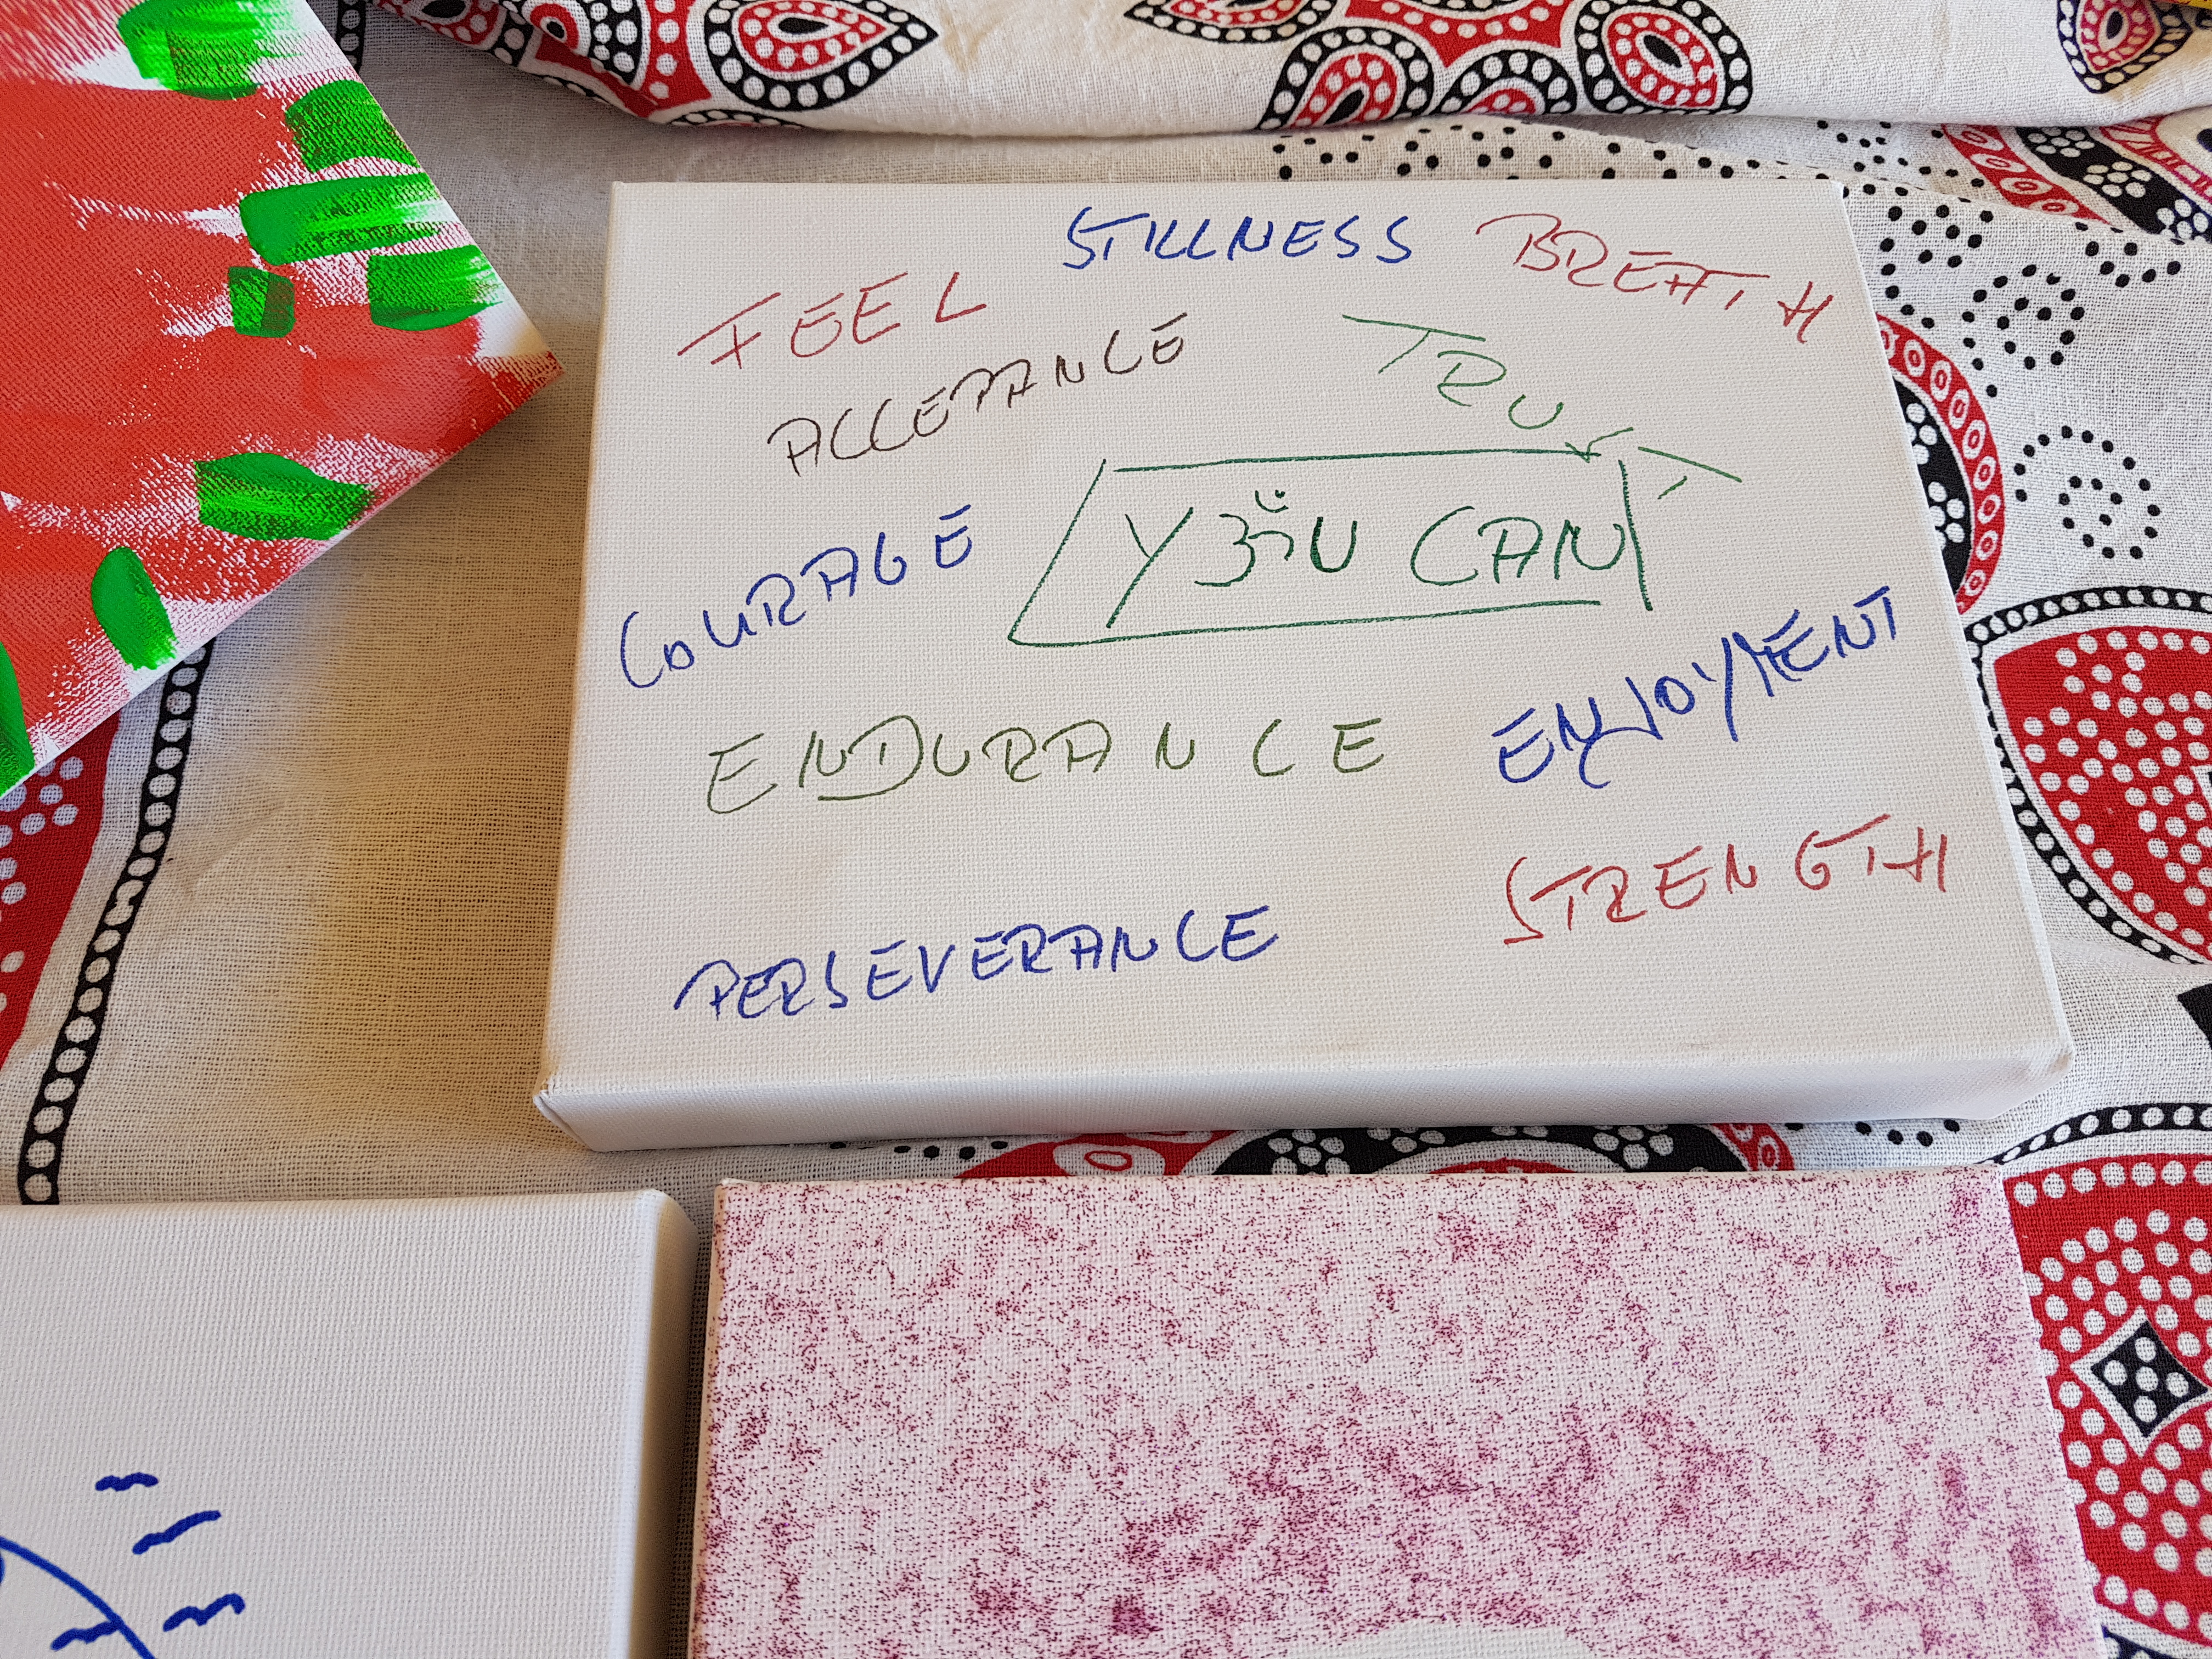 STILLNESS
BREATH
FEEL
ACCEPANCE
TRUST
YॐU CAN
COURAGE
ENJOYMENT
ENDURANCE
STRENGTH
PERSEVERANCE